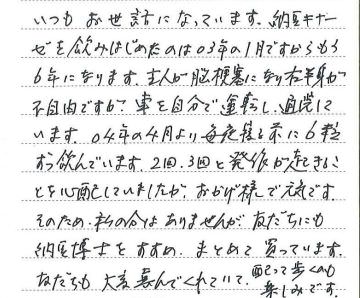 いつもお世話になっています。納豆キナー
ゼを飲みはじめたのは03年の1月ですからもう
6年になります。主人が脳梗塞になり右半身が
不自由ですが、車を自分で運転し、通院して
います。04年の4月より毎夜寝る前に6粒
ずつ飲んでいます。2回、3回と発作が起てきるこ
とを心配していましたが、おかげ様で元気です。
そのため、私の分はありませんが、友だちにも
納豆博士をすすめ、まとめて買っています。
友だちも大変喜んでくれていて、配って歩くのも
楽しみです。